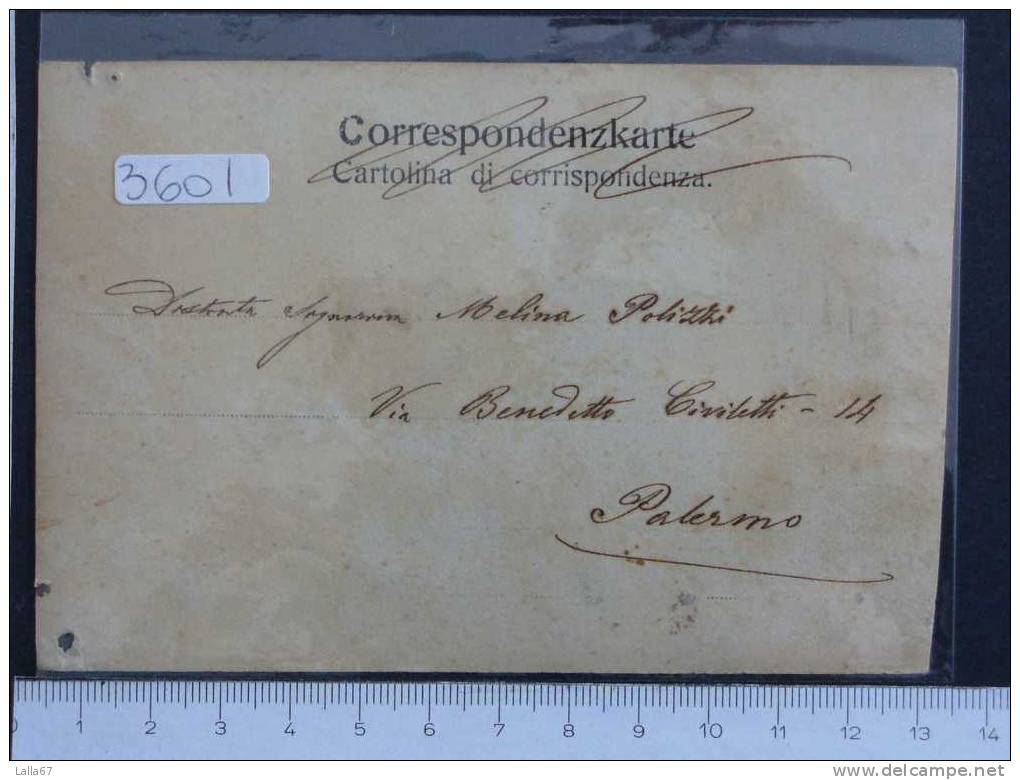 Correspondenzkarte
Cartolina di corrispondenza.
3601
Melina Polizzi
Via Benedetto Civiletti - 14
Palermo
0 1 2 3 4 5 6 7 8 9 10 11 12 13 14
Lalla67
www.delcampe.net